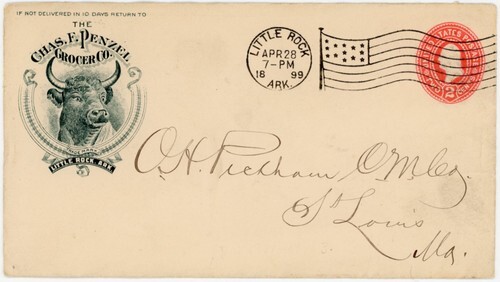 IF NOT DELIVERED IN 10 DAYS RETURN TO
THE
CHAS. F. PENZEL
GROCER CO.
TRADE MARK
LITTLE ROCK, ARK.
LITTLE ROCK
APR 28
7-PM
18 99
ARK.
UNITED STATES POSTAGE
2
O.H. Peckham
St Louis
Mo.